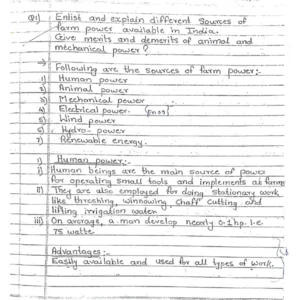 Q1) Enlist and explain different Sources of
farm power available in India.
Give merits and demerits of animal and
mechanical power?
→ Following are the sources of farm power:-
1) Human power
2) Animal power
3) Mechanical power
4) Electrical power
5) Wind power
6) Hydro- power
7) Renewable energy.
1) Human power:-
i) Human beings are the main source of power
for operating small tools and implements at farms
ii) They are also employed for doing stationary work
like threshing, winnowing, chaff cutting and
lifting irrigation water
iii) On average, a man develop nearly 0.1 hp. i.e
75 watts
Advantages:-
Easily available and used for all types of work.